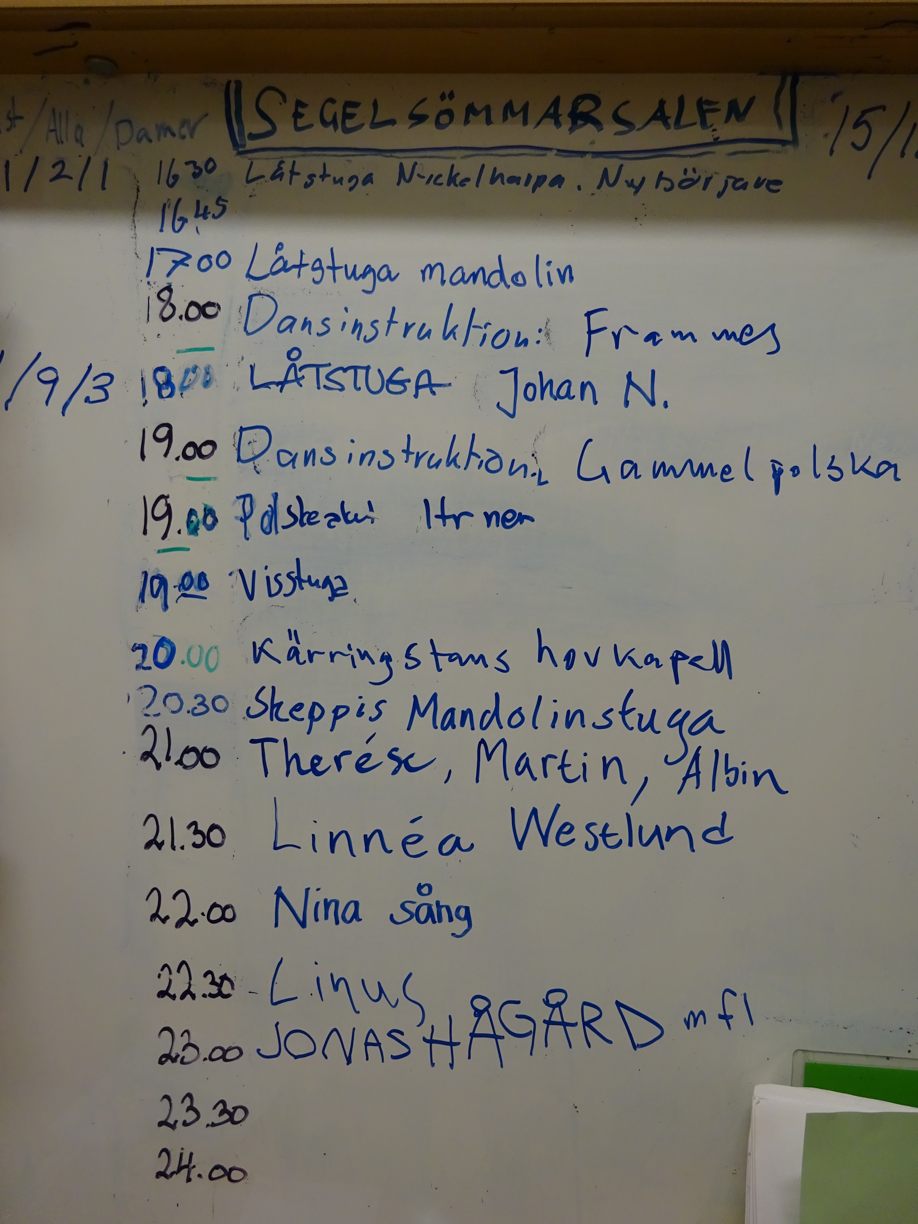 /Alla/Damer SEGELSÖMMARSALEN 15/1
1/2/1 16 30 Låtstuga Nickelharpa. Nybörjare
16.45
17 00 Låtstuga mandolin
18.00 Dansinstruktion: Frammes
/9/3 18 00 LÅTSTUGA Johan N.
19.00 Dansinstruktion: Gammelpolska
19.00
19.00 Visstuga
20.00 Kärringstans hovkapell
20.30 Skeppis Mandolinstuga
21.00 Therése, Martin, Albin
21.30 Linnéa Westlund
22.00 Nina sång
22.30 - Linus
23.00 JONAS HÅGÅRD mfl
23.30
24.00